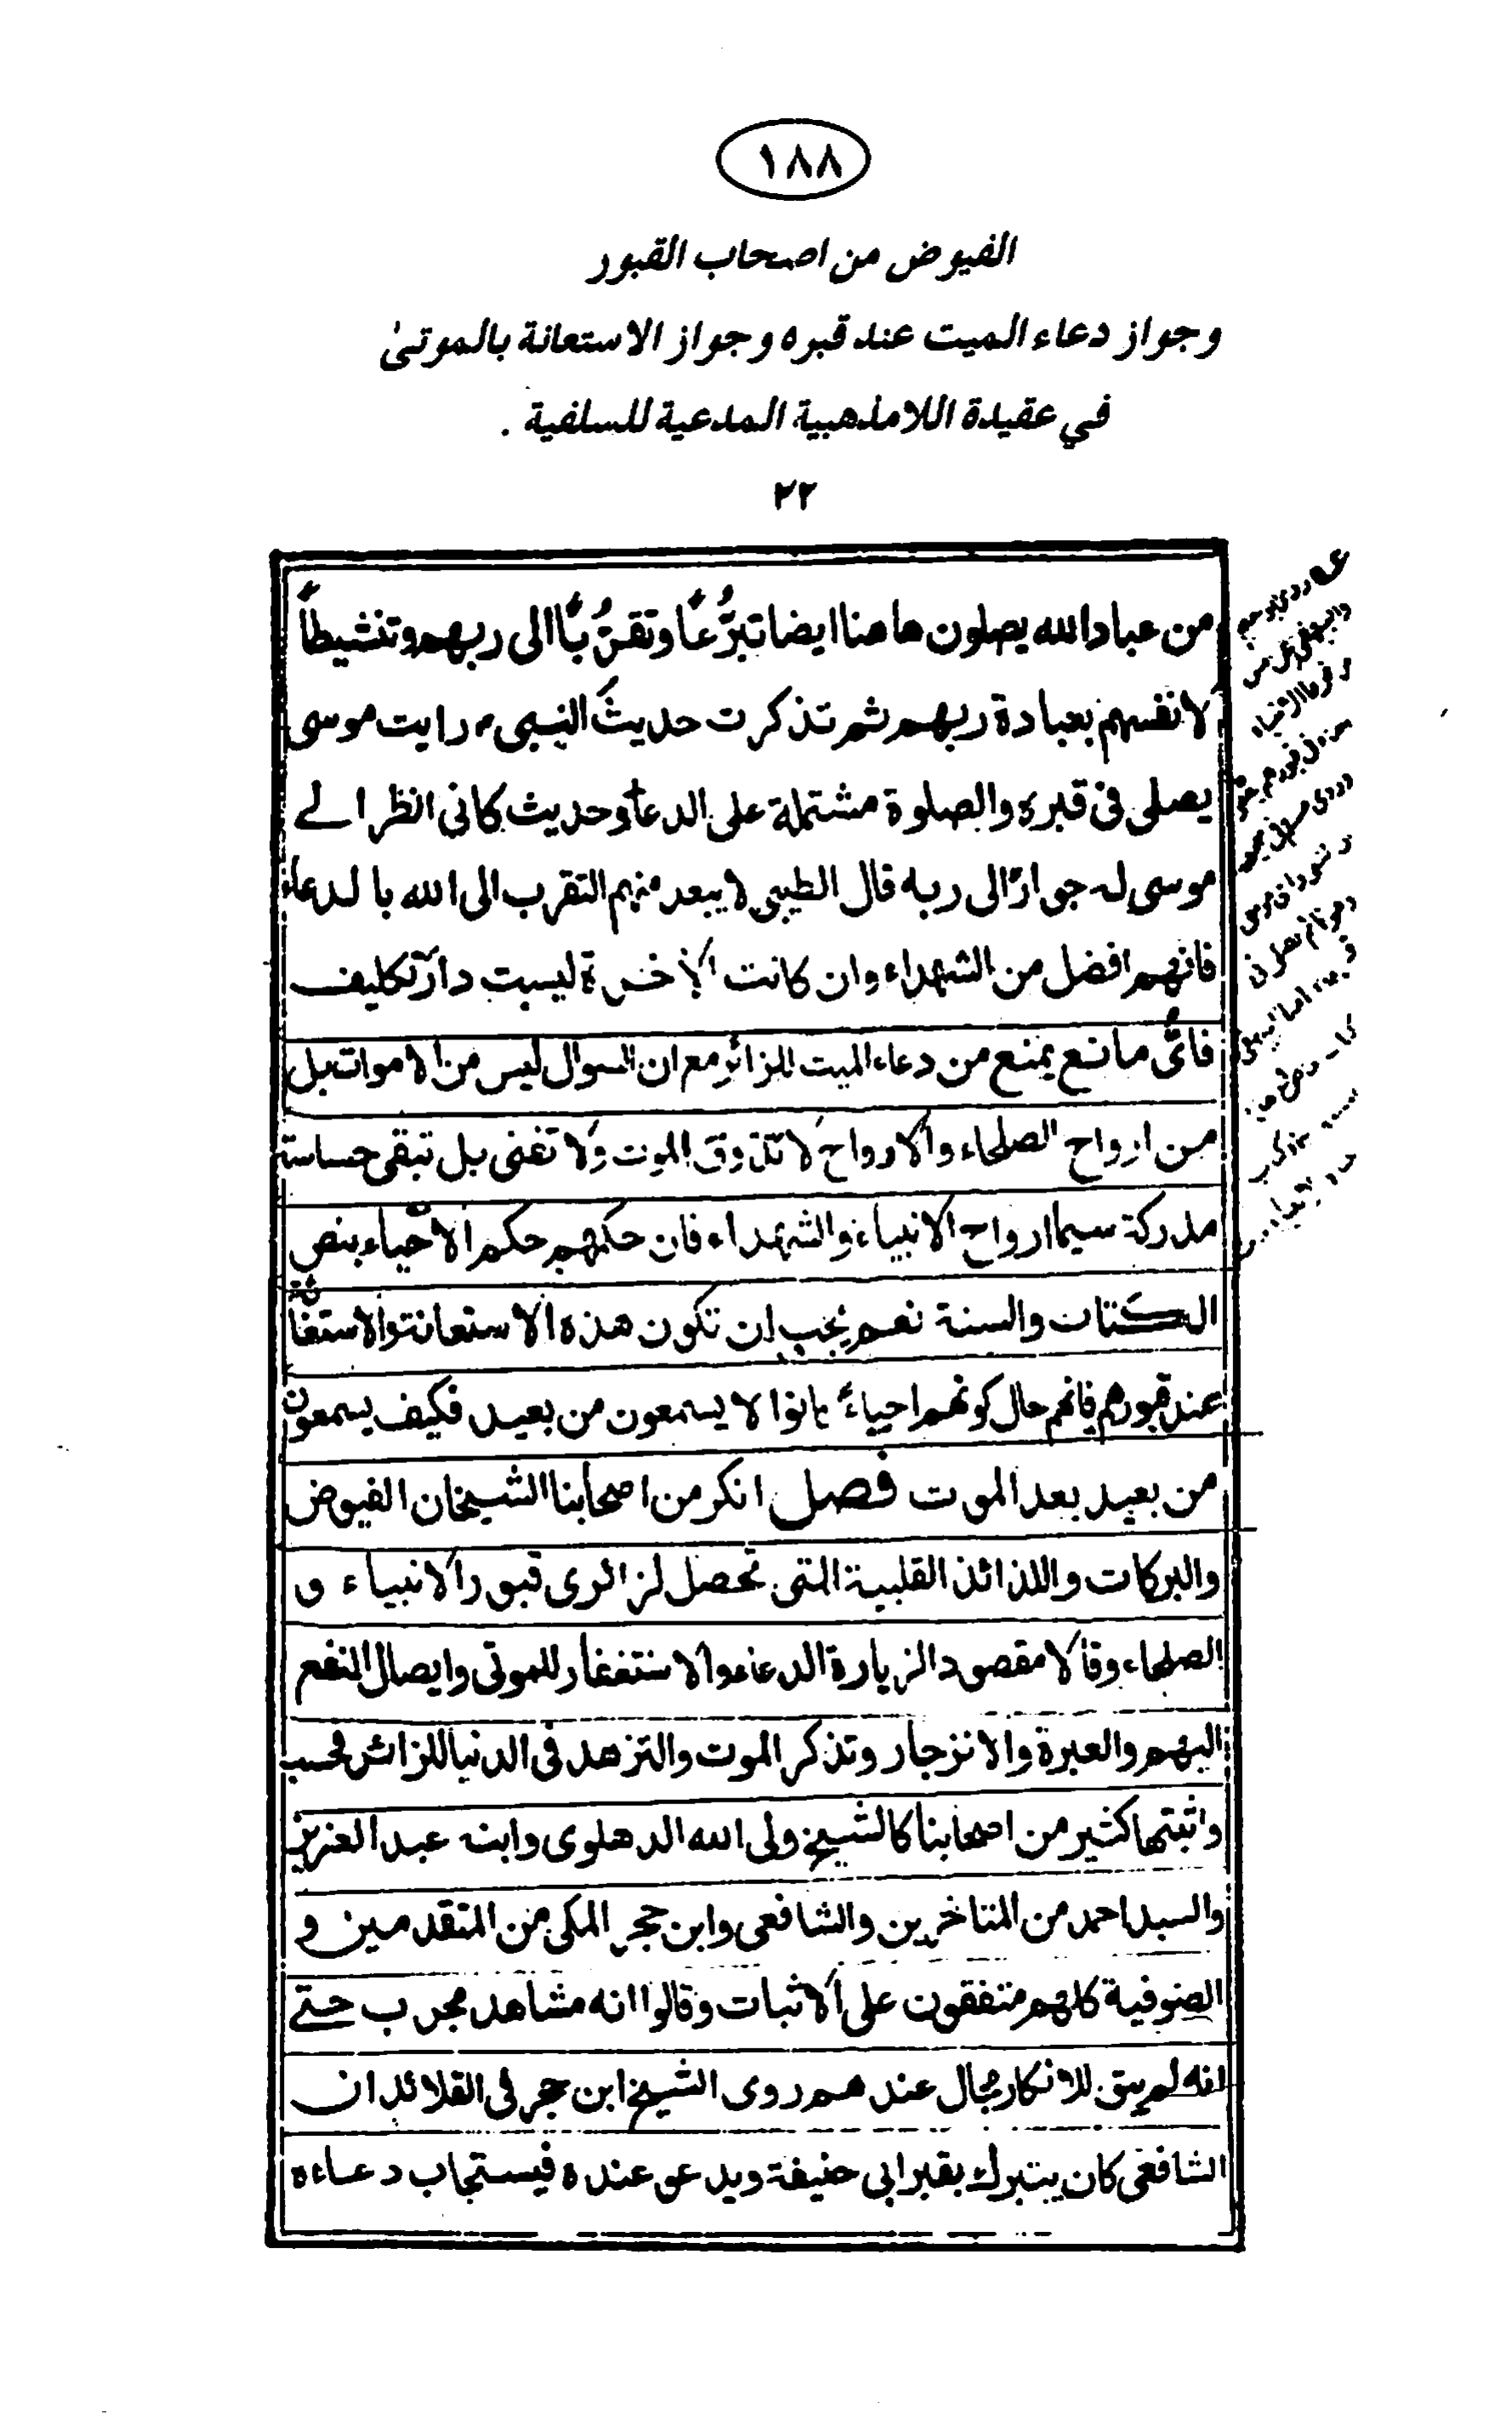 ١٨٨
الفيوض من اصحاب القبور
وجواز دعاء الميت عند قبره وجواز الاستعانة بالموتىٰ
في عقيدة اللامذهبية المدعية للسلفية .
٢٢
من عباد الله يصلون هاهنا ايضا تبرُّعًا وتقرُّبًا الى ربهم وتنشيطاً
لانفسهم بعبادة ربهم ثم تذكرت حديث النبي رايت موسى
يصلى فى قبره والصلوة مشتملة على الدعاء وحديث كانى انظر الے
موسى له جوارًا الى ربه قال الطيبى لا يبعد منهم التقرب الى الله بالدعاء
فانهم افضل من الشهداء وان كانت الآخرة ليست دار تكليف
فاىُّ مانع يمنع من دعاء الميت للزائر مع ان السوال ليس من الاموات بل
من ارواح الصلحاء والارواح لا تذوق الموت ولا تفنى بل تبقى حساسة
مدركة سيما ارواح الانبياء والشهداء فان حكمهم حكم الاحياء بنص
الكتاب والسنة نعم يجب ان تكون هذه الاستعانة والاستغاثة
عند قبورهم فانهم حال كونهم احياءً كانوا لا يسمعون من بعيد فكيف يسمعون
من بعيد بعد الموت فصل انكر من اصحابنا الشيخان الفيوض
والبركات واللذائذ القلبية التى تحصل لزائرى قبور الانبياء و
الصلحاء وقالا مقصود الزيارة الدعاء والاستغفار للموتى وايصال النفع
اليهم والعبرة والانزجار وتذكر الموت والتزهد فى الدنيا للزائر فحسب
واثبتها كثير من اصحابنا كالشيخ ولى الله الدهلوى وابنه عبد العزيز
والسيد احمد من المتاخرين والشافعى وابن حجر المكى من المتقدمين و
الصوفية كلهم متفقون على الاثبات وقالوا انه مشاهد مجرب حتے
انه لم يبق للانكار مجال عندهم روى الشيخ ابن حجر فى القلائد ان
الشافعى كان يتبرك بقبر ابى حنيفة ويدعو عنده فيستجاب دعاءه